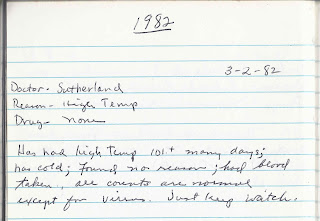 1982
3-2-82
Doctor - Sutherland
Reason - High Temp
Drug - none
Has had high Temp 101+ many days;
has cold; found no reason; had blood
taken, all counts are normal
except for virus. Just keep watch.